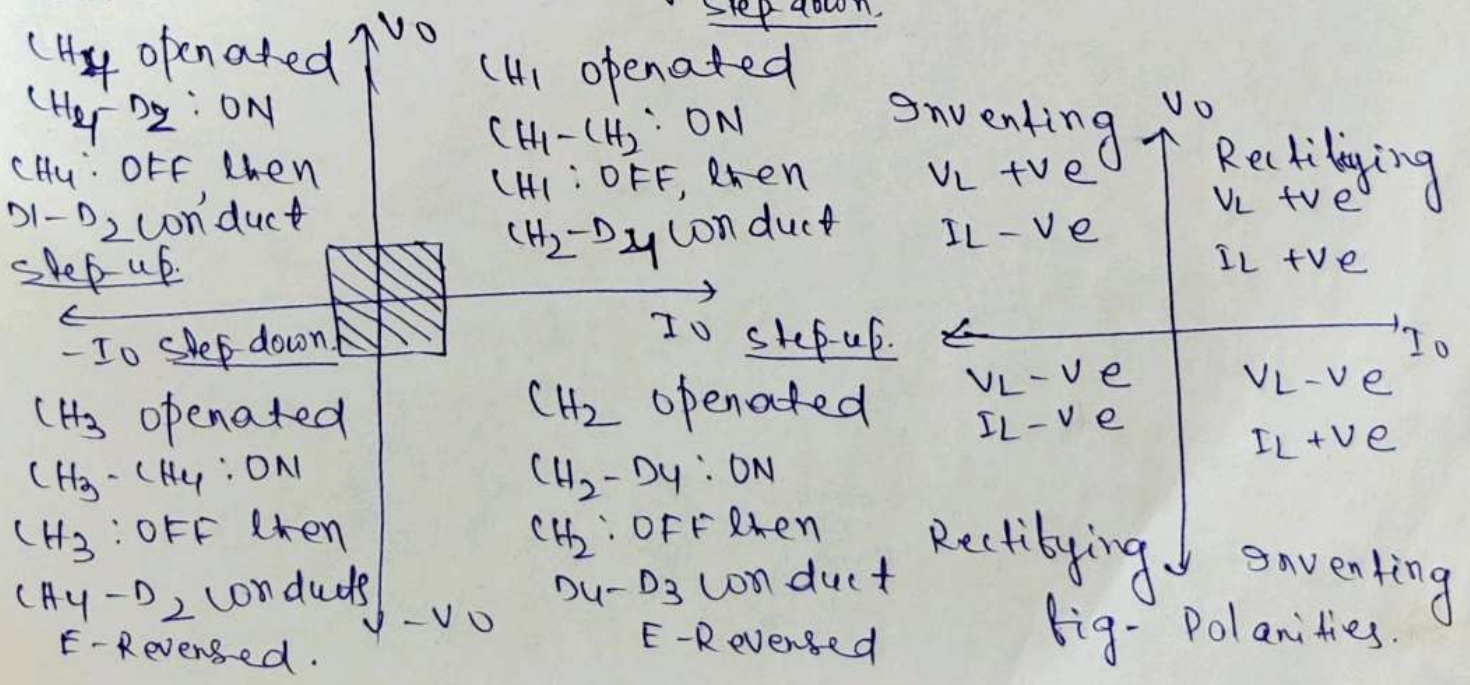 step down.
CH4 operated
CH4-D2 : ON
CH4 : OFF, then
D1-D2 conduct
step-up.
V0
CH1 operated
CH1-CH2 : ON
CH1 : OFF, then
CH2-D4 conduct
-I0 step down.
I0 step-up.
CH3 operated
CH3-CH4 : ON
CH3 : OFF then
CH4-D2 conducts
E-Reversed.
-V0
CH2 operated
CH2-D4 : ON
CH2 : OFF then
D4-D3 conduct
E-Reversed
Inverting
VL +ve
IL -ve
V0
Rectifying
VL +ve
IL +ve
I0
VL -ve
IL -ve
Rectifying
VL -ve
IL +ve
Inverting
fig- Polarities.